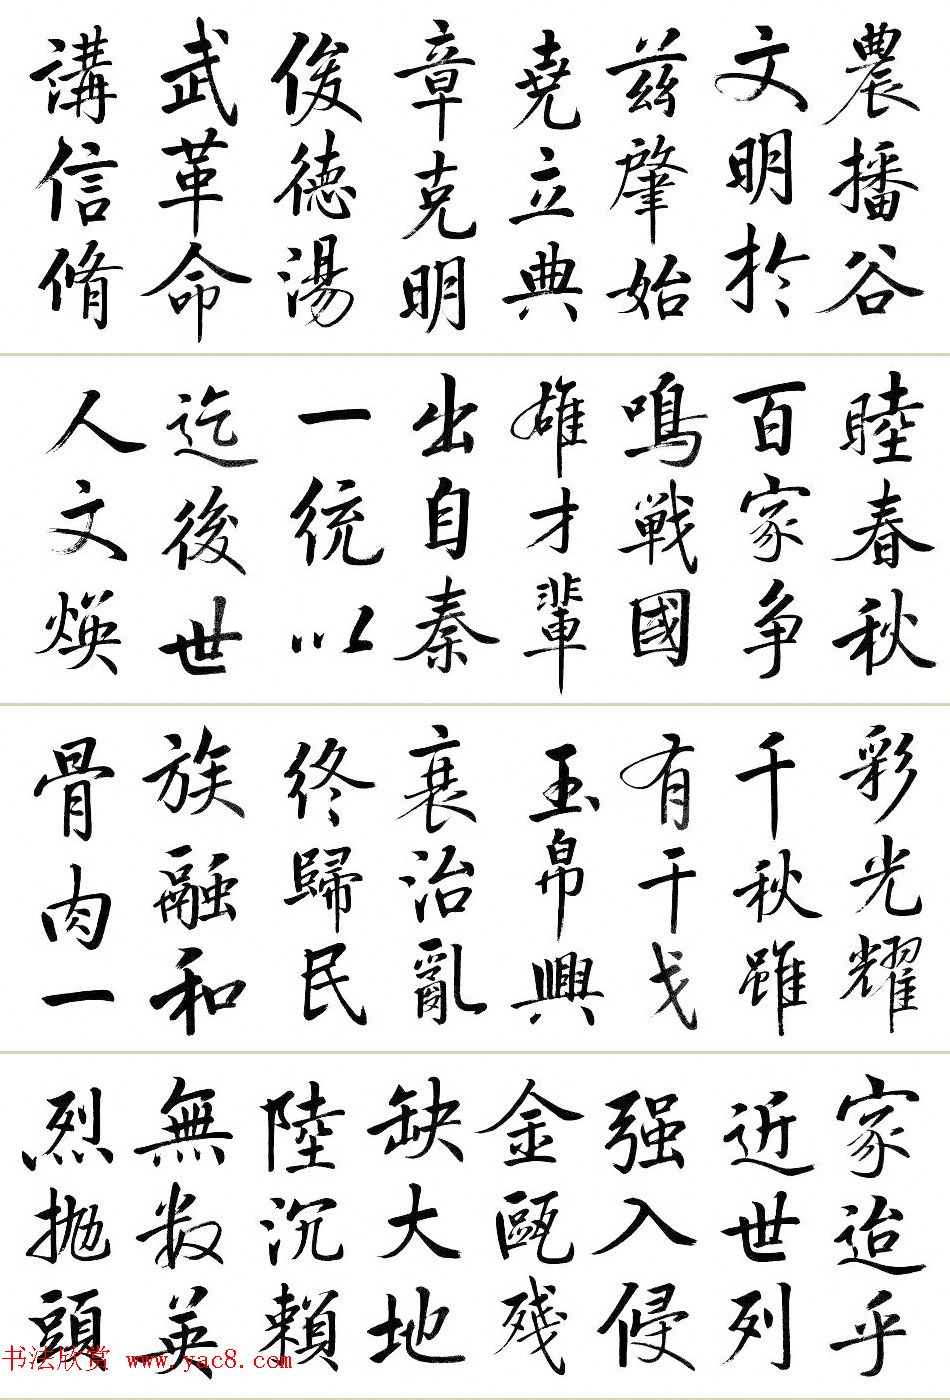 農播谷
文明於
茲肇始
堯立典
章克明
俊德湯
武革命
講信脩
睦春秋
百家争
鳴戰國
雄才輩
出自秦
一统以
迄後世
人文焕
彩光耀
千秋雖
有干戈
玉帛興
衰治亂
终歸民
族融和
骨肉一
家迨乎
近世列
强入侵
金甌殘
缺大地
陸沉賴
無数英
烈抛頭
书法欣赏 www.yac8.com